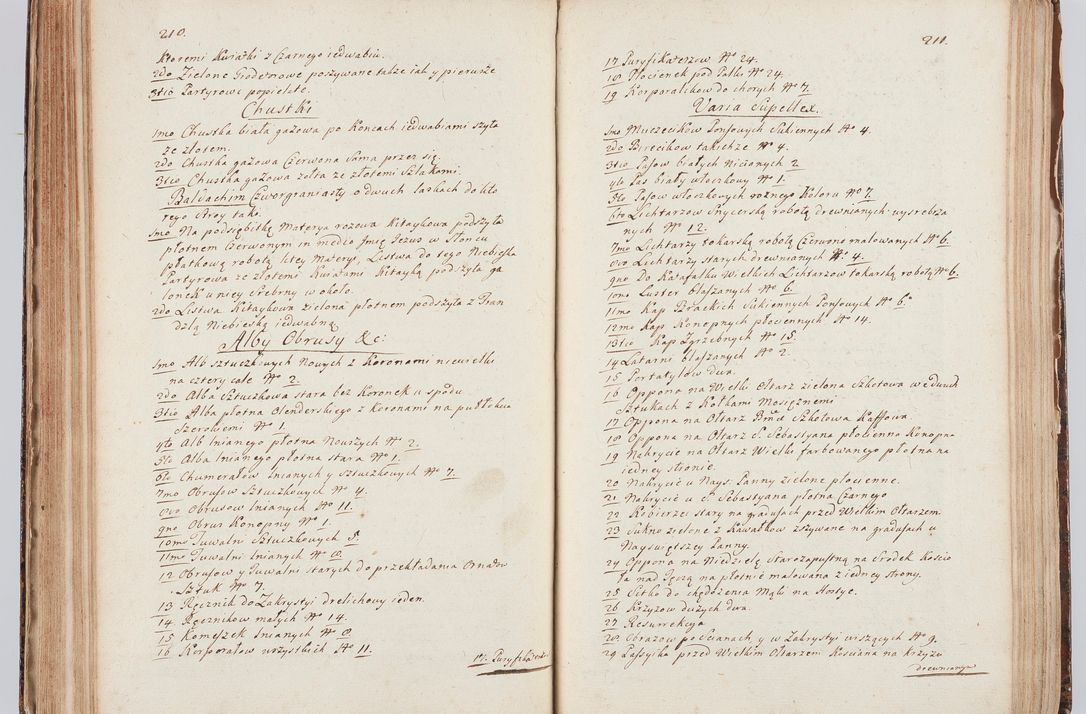 210.
ktoremi kwiatki z Czarnego iedwabiu.
2do Zielone Grodetorowe poszywane także iak y pierwsze
3tio Partyrowe popielate.
Chustki
1mo Chustka biała gazowa po koncach iedwabiami szyta
ze złotem.
2do Chustka gazowa Czerwona sama przez się.
3tio Chustka gazowa żołta ze złotemi szlakami.
Baldachim Czworgraniasty o dwuch laskach do kto
rego stroy taki.
1mo Na podsiębitkę materya rozowa kitaykowa podszyta
płotnem Czerwonym in medio Imię Jezus w słoncu
płatkową robotą teyże materyi, Listwa do tego Niebieska
Partyrowa ze złotemi kwiatami kitayką podszyta ga
lonek u niey srebrny w około.
2do Listwa kitaykowa zielona płotnem podszyta z Fran
dzlą Niebieską iedwabną
Alby Obrusy &c:
1mo Alb sztuczkowych Nowych z koronami niewielki
na cztery cale No 2.
2do Alba sztuczkowa stara bez koronek u spodu.
3tio Alba płotna Olenderskiego z koronami na puł łokcia
szerokiemi No 1.
4to Alb lnianego płotna Nowszych No 2.
5to Alba lnianego płotna stara No 1.
6to Humerałow lnianych y sztuczkowych No 7.
7mo Obrusow sztuczkowych No 4.
8vo Obrusow lnianych No 11.
9no Obrus konopny No 1.
10mo Tuwalni sztuczkowych 5.
11mo Tuwalni lnianych No 8.
12 Obrusow y Tuwalni starych do przekładania Ornatow
sztuk No 7.
13 Ręcznik do Zakrystyi drelichowy ieden.
14 Ręcznikow małych No 14.
15 Komeszek lnianych No 8.
16 Korporałow wszystkich No 11.
17. Puryfika
211.
17 Puryfikaterzow No 24.
18 Płocienek pod Palki No 24.
19 Korporalikow do chorych No 7.
Varia Supellex.
1mo Mucecikow Ponsowych sukiennych No 4.
2do Birecikow takichże No 4.
3tio Pasow białych Nicianych 2
4to Pas biały włoczkowy No 1.
5to Pasow włoczkowych rożnego koloru No 7.
6to Lichtarzow snycerską robotą drewnianych wysrebrza
nych No 12.
7mo Lichtarzy tokarską robotą Czerwono malowanych No 6.
8vo Lichtarzy starych drewnianych No 4.
9no Do Katafalku Wielkich Lichtarzow tokarską robotą No 6.
10mo Luster blaszanych No 6.
11mo Kap Brackich sukiennych Ponsowych No 6.
12mo Kap konopnych płociennych No 14.
13tio Kap Zgrzebnych No 15.
14 Latarni blaszanych No 2.
15 Portatylow dwa.
16 Oppona na Wielki Ołtarz zielona szketowa we dwuch
sztukach z kołkami mosiężnemi
17 Oppona na Ołtarz szketowa kaffowa.
18 Oppona na Ołtarz S. Sebastyana płocienna konopna
19 Nakrycie na Ołtarz Wielki farbowanego płotna na
iedney stronie.
20 Nakrycie u Nayś. Panny zielone płocienne.
21 Nakrycie u S. Sebastyana płotna Czarnego
22 Kobierzec stary na gradusach przed Wielkim Ołtarzem.
23 Sukno zielone z kawałkow zszywane na gradusach u
Nayświętszey Panny.
24 Oppona na Niedzielę Starozapustną na srodek koscio
ła nad tęczą na płotnie malowana z iedney strony.
25 Sitko do chędożenia Mąki na Hostye.
26 Krzyżow dużych dwa.
27 Resurrekcja
28 Obrazow po scianach, y w Zakrystyi wiszących No 9.
29 Passyika przed Wielkim Ołtarzem kosciana na krzyżu
drewnianym